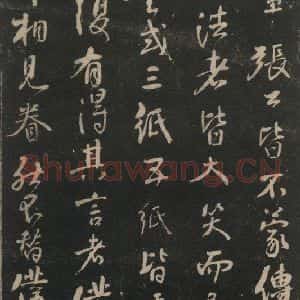 張公皆不蒙傳
法者皆大笑而
或三紙五紙皆
復有得其言者僕
相見眷然不替僕
Shufawang.CN